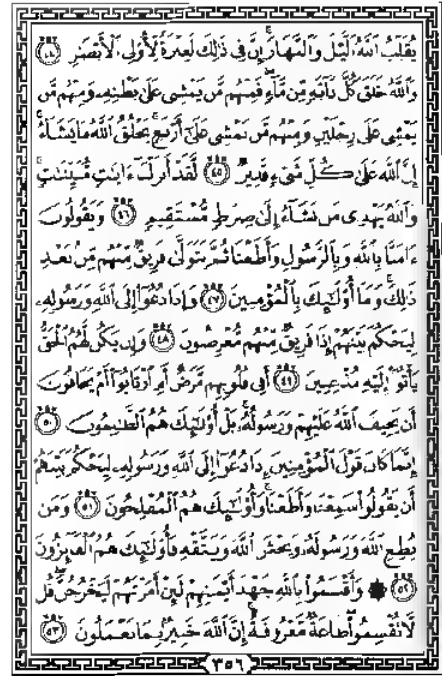 يُقَلِّبُ ٱللَّهُ ٱلَّيْلَ وَٱلنَّهَارَ إِنَّ فِي ذَٰلِكَ لَعِبْرَةً لِّأُو۟لِي ٱلْأَبْصَٰرِ ٤٤
وَٱللَّهُ خَلَقَ كُلَّ دَآبَّةٍ مِّن مَّآءٍ فَمِنْهُم مَّن يَمْشِي عَلَىٰ بَطْنِهِۦ وَمِنْهُم مَّن
يَمْشِي عَلَىٰ رِجْلَيْنِ وَمِنْهُم مَّن يَمْشِي عَلَىٰٓ أَرْبَعٍ يَخْلُقُ ٱللَّهُ مَا يَشَآءُ
إِنَّ ٱللَّهَ عَلَىٰ كُلِّ شَيْءٍ قَدِيرٌ ٤٥ لَّقَدْ أَنزَلْنَآ ءَايَٰتٍ مُّبَيِّنَٰتٍ
وَٱللَّهُ يَهْدِي مَن يَشَآءُ إِلَىٰ صِرَٰطٍ مُّسْتَقِيمٍ ٤٦ وَيَقُولُونَ
ءَامَنَّا بِٱللَّهِ وَبِٱلرَّسُولِ وَأَطَعْنَا ثُمَّ يَتَوَلَّىٰ فَرِيقٌ مِّنْهُم مِّنۢ بَعْدِ
ذَٰلِكَ وَمَآ أُو۟لَٰٓئِكَ بِٱلْمُؤْمِنِينَ ٤٧ وَإِذَا دُعُوٓا۟ إِلَى ٱللَّهِ وَرَسُولِهِۦ
لِيَحْكُمَ بَيْنَهُمْ إِذَا فَرِيقٌ مِّنْهُم مُّعْرِضُونَ ٤٨ وَإِن يَكُن لَّهُمُ ٱلْحَقُّ
يَأْتُوٓا۟ إِلَيْهِ مُذْعِنِينَ ٤٩ أَفِي قُلُوبِهِم مَّرَضٌ أَمِ ٱرْتَابُوٓا۟ أَمْ يَخَافُونَ
أَن يَحِيفَ ٱللَّهُ عَلَيْهِمْ وَرَسُولُهُۥ بَلْ أُو۟لَٰٓئِكَ هُمُ ٱلظَّٰلِمُونَ ٥٠
إِنَّمَا كَانَ قَوْلَ ٱلْمُؤْمِنِينَ إِذَا دُعُوٓا۟ إِلَى ٱللَّهِ وَرَسُولِهِۦ لِيَحْكُمَ بَيْنَهُمْ
أَن يَقُولُوا۟ سَمِعْنَا وَأَطَعْنَا وَأُو۟لَٰٓئِكَ هُمُ ٱلْمُفْلِحُونَ ٥١ وَمَن
يُطِعِ ٱللَّهَ وَرَسُولَهُۥ وَيَخْشَ ٱللَّهَ وَيَتَّقْهِ فَأُو۟لَٰٓئِكَ هُمُ ٱلْفَآئِزُونَ
٥٢ ۞ وَأَقْسَمُوا۟ بِٱللَّهِ جَهْدَ أَيْمَٰنِهِمْ لَئِنْ أَمَرْتَهُمْ لَيَخْرُجُنَّ قُل
لَّا تُقْسِمُوا۟ طَاعَةٌ مَّعْرُوفَةٌ إِنَّ ٱللَّهَ خَبِيرٌۢ بِمَا تَعْمَلُونَ ٥٣
٣٥٦